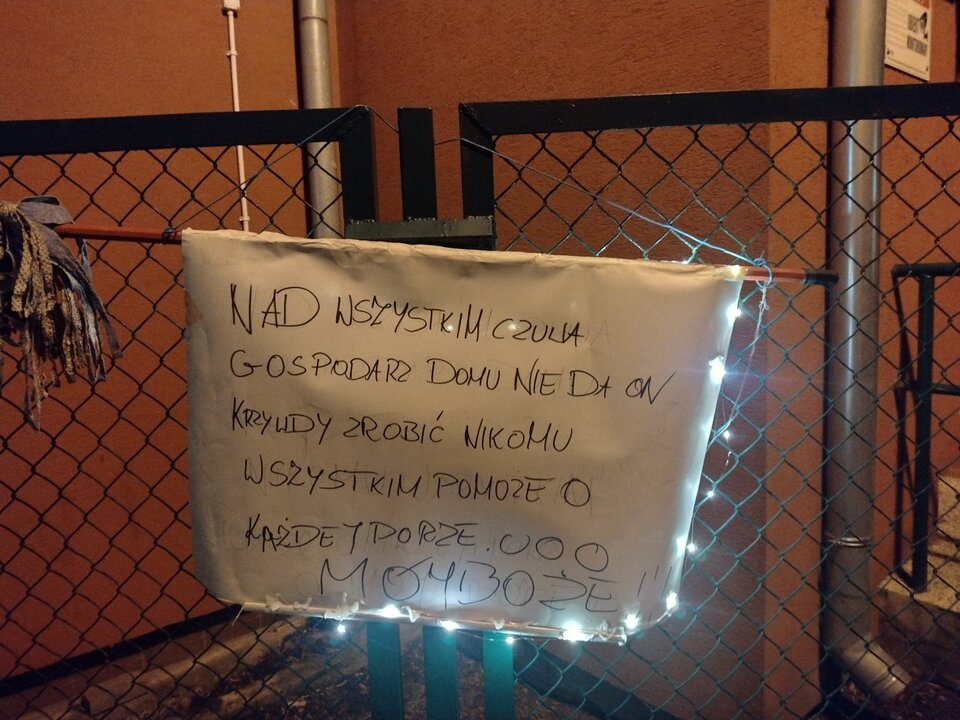 NAD WSZYSTKIM CZUWA
GOSPODARZ DOMU NIE DA ON
KRZYWDY ZROBIĆ NIKOMU
WSZYSTKIM POMOŻE O
KAŻDEJ PORZE. OOO
MÓJ BOŻE!!!
OBIEKT
MONITOROWANY